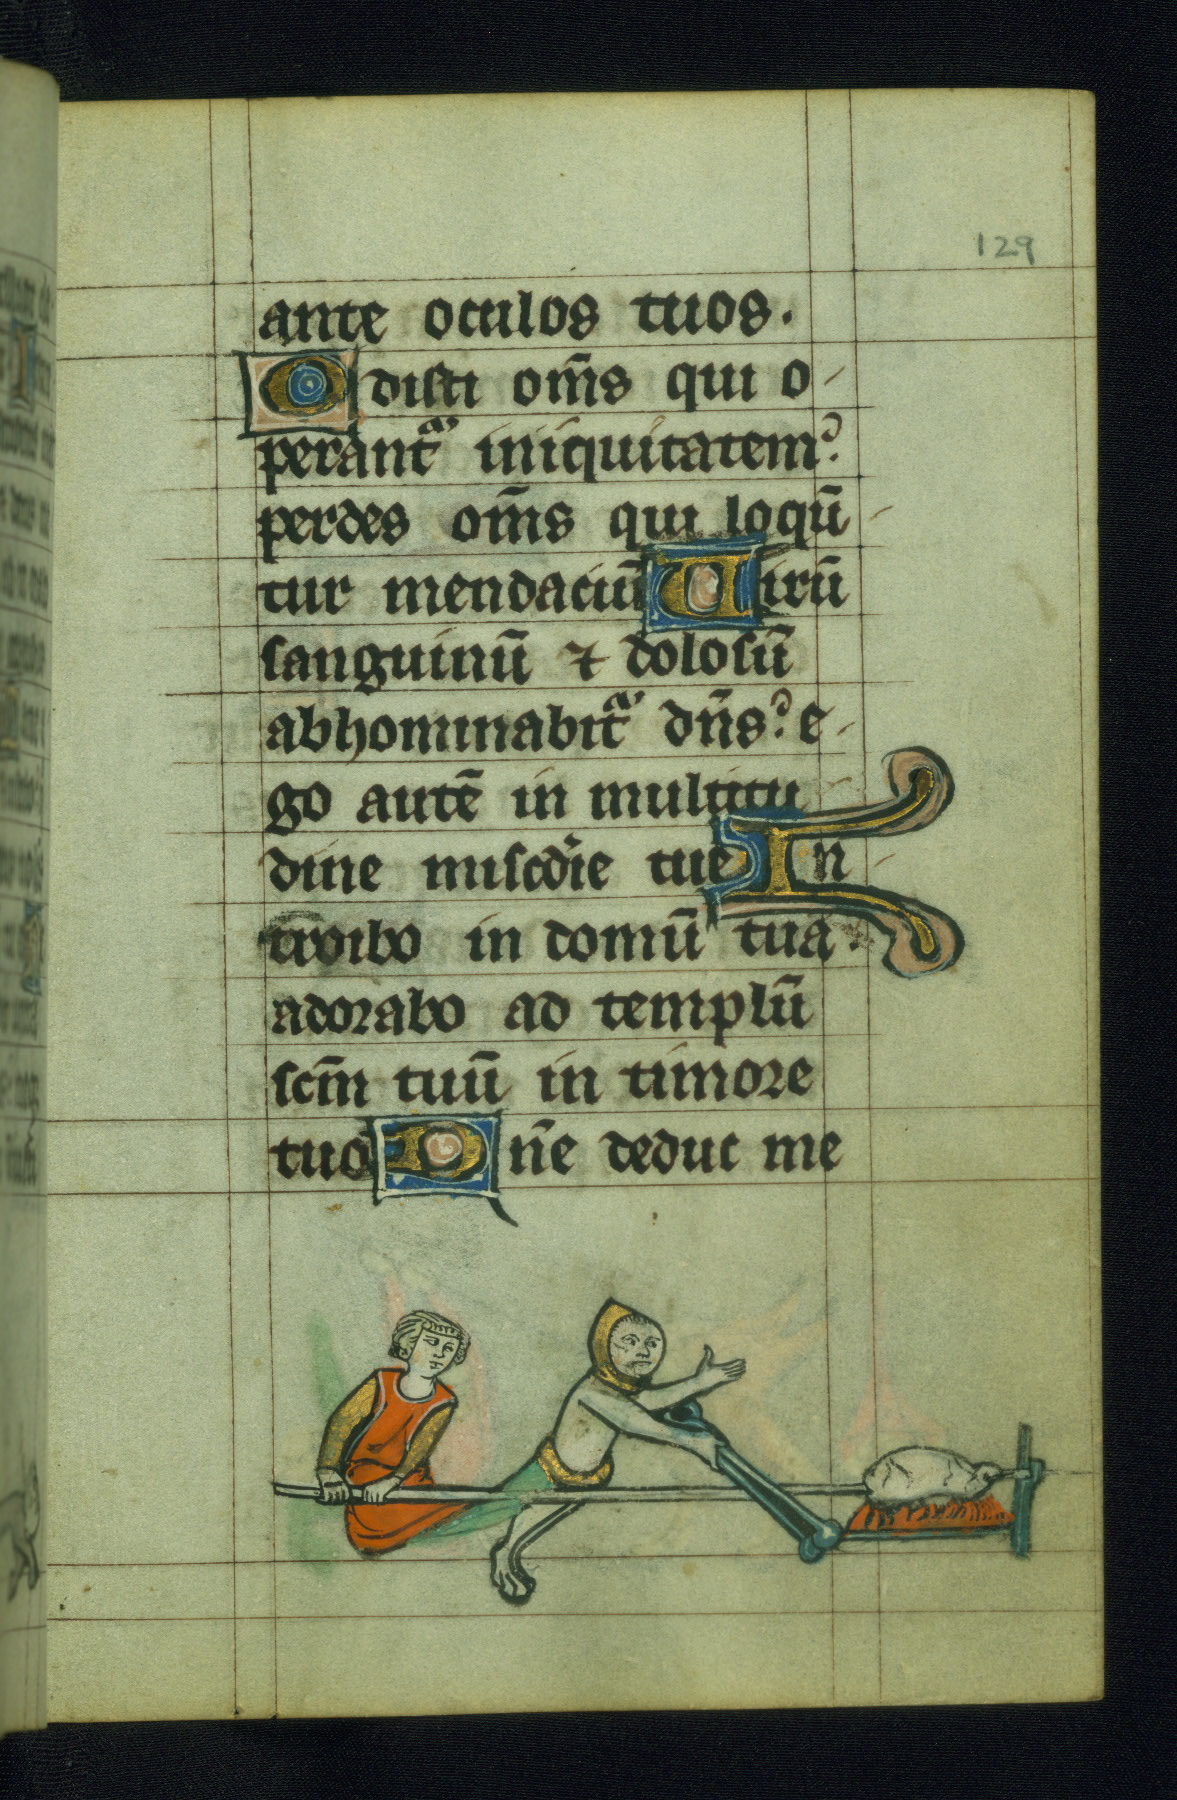 129
ante oculos tuos.
Odisti om̄s qui o-
perantᷓ iniquitatem?
perdes om̄s qui loqū-
tur mendaciū Uirū
sanguinū ⁊ dolosū
abhominabitᷓ dn̄s? e-
go autē in multitu-
dine miscd̄ie tue In-
troibo in domū tuā.
adorabo ad templū
scm̄ tuū in timore
tuo Dn̄e deduc me